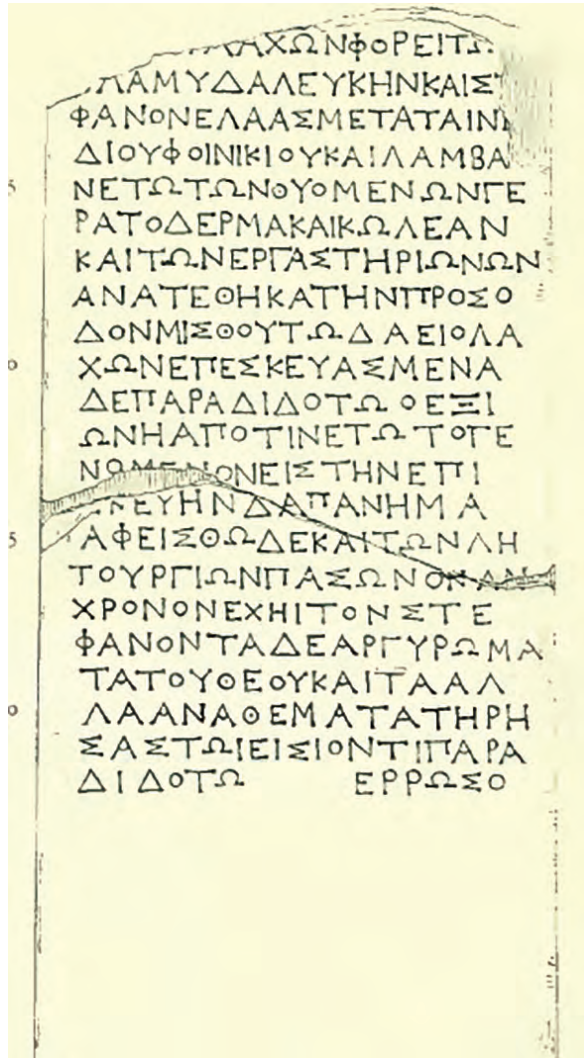 ΛΑΧΩΝΦΟΡΕΙΤΩ
ΛΑΜΥΔΑΛΕΥΚΗΝΚΑΙΣ
ΦΑΝΟΝΕΛΑΑΣΜΕΤΑΤΑΙΝ
ΔΙΟΥΦΟΙΝΙΚΙΟΥΚΑΙΛΑΜΒΑ
5 ΝΕΤΩΤΩΝΘΥΟΜΕΝΩΝΓΕ
ΡΑΤΟΔΕΡΜΑΚΑΙΚΩΛΕΑΝ
ΚΑΙΤΩΝΕΡΓΑΣΤΗΡΙΩΝΩΝ
ΑΝΑΤΕΘΗΚΑΤΗΝΠΡΟΣΟ
ΔΟΝΜΙΣΘΟΥΤΩΔΑΕΙΟΛΑ
0 ΧΩΝΕΠΕΣΚΕΥΑΣΜΕΝΑ
ΔΕΠΑΡΑΔΙΔΟΤΩΟΕΞΙ
ΩΝΗΑΠΟΤΙΝΕΤΩΤΟΓΕ
ΝΩΜΕΝΟΝΕΙΣΤΗΝΕΠΙ
ΣΚΕΥΗΝΔΑΠΑΝΗΜΑ
5 ΑΦΕΙΣΘΩΔΕΚΑΙΤΩΝΛΗ
ΤΟΥΡΓΙΩΝΠΑΣΩΝΟΚΑΝ
ΧΡΟΝΟΝΕΧΗΙΤΟΝΣΤΕ
ΦΑΝΟΝΤΑΔΕΑΡΓΥΡΩΜΑ
ΤΑΤΟΥΘΕΟΥΚΑΙΤΑΑΛ
0 ΛΑΑΝΑΘΕΜΑΤΑΤΗΡΗ
ΣΑΣΤΩΙΕΙΣΙΟΝΤΙΠΑΡΑ
ΔΙΔΟΤΩ ΕΡΡΩΣΟ